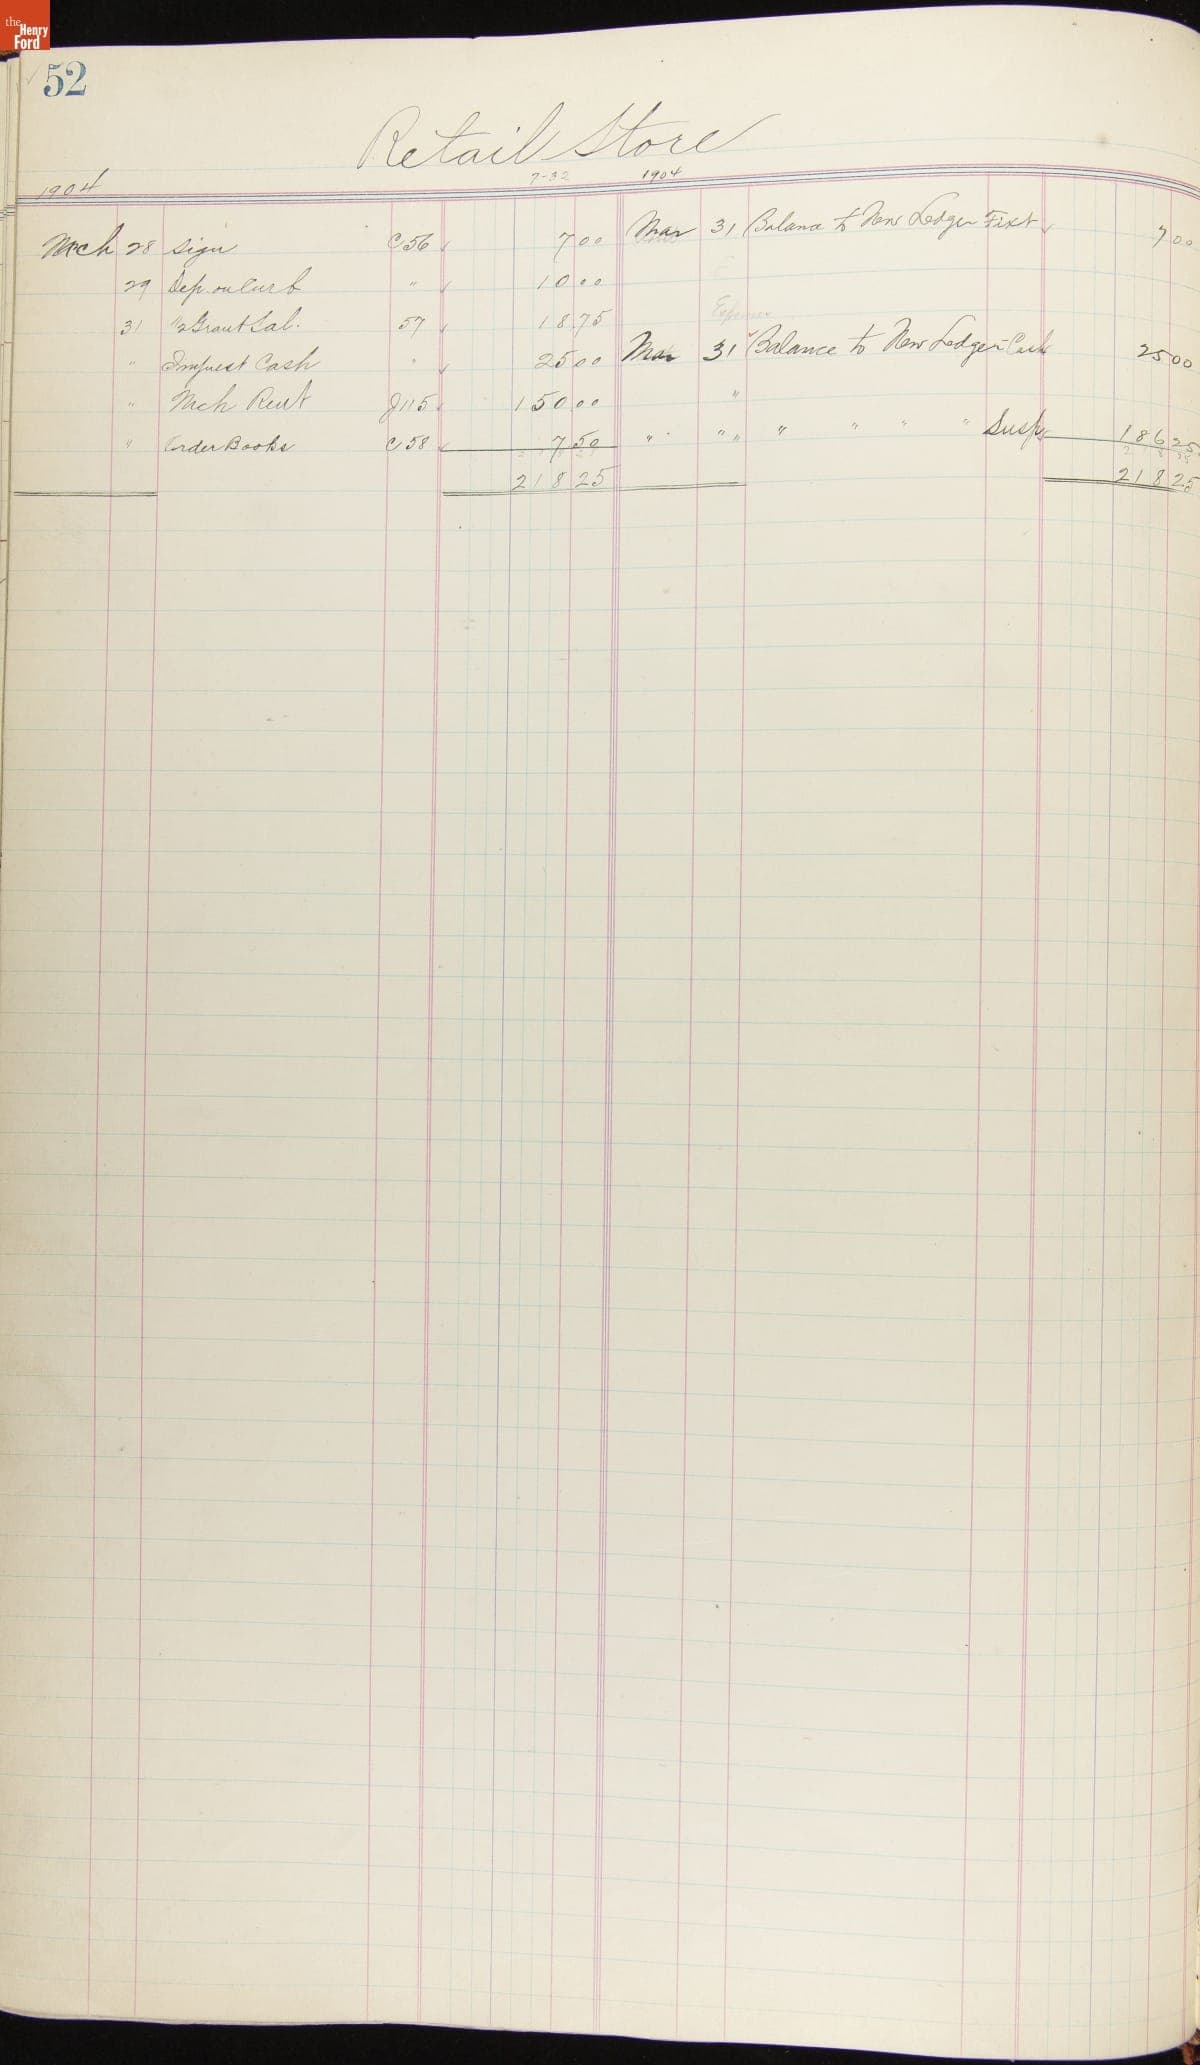 the Henry Ford
52
Retail Store
1904 7-32 1904
Mch 28 Sign C 56 7 00 Mar 31 Balance to New Ledger Fixt 7 00
29 Dep. on Curb " 10 00
31 1/2 Grant Sal. 57 18 75 Expense
" Imprest Cash " 25 00 Mar 31 Balance to New Ledger - Cash 25 00
" Mch Rent J 115 150 00 "
" Order Books C 58 7 50 " " " " " " " Susp 186 25
218 25 218 25